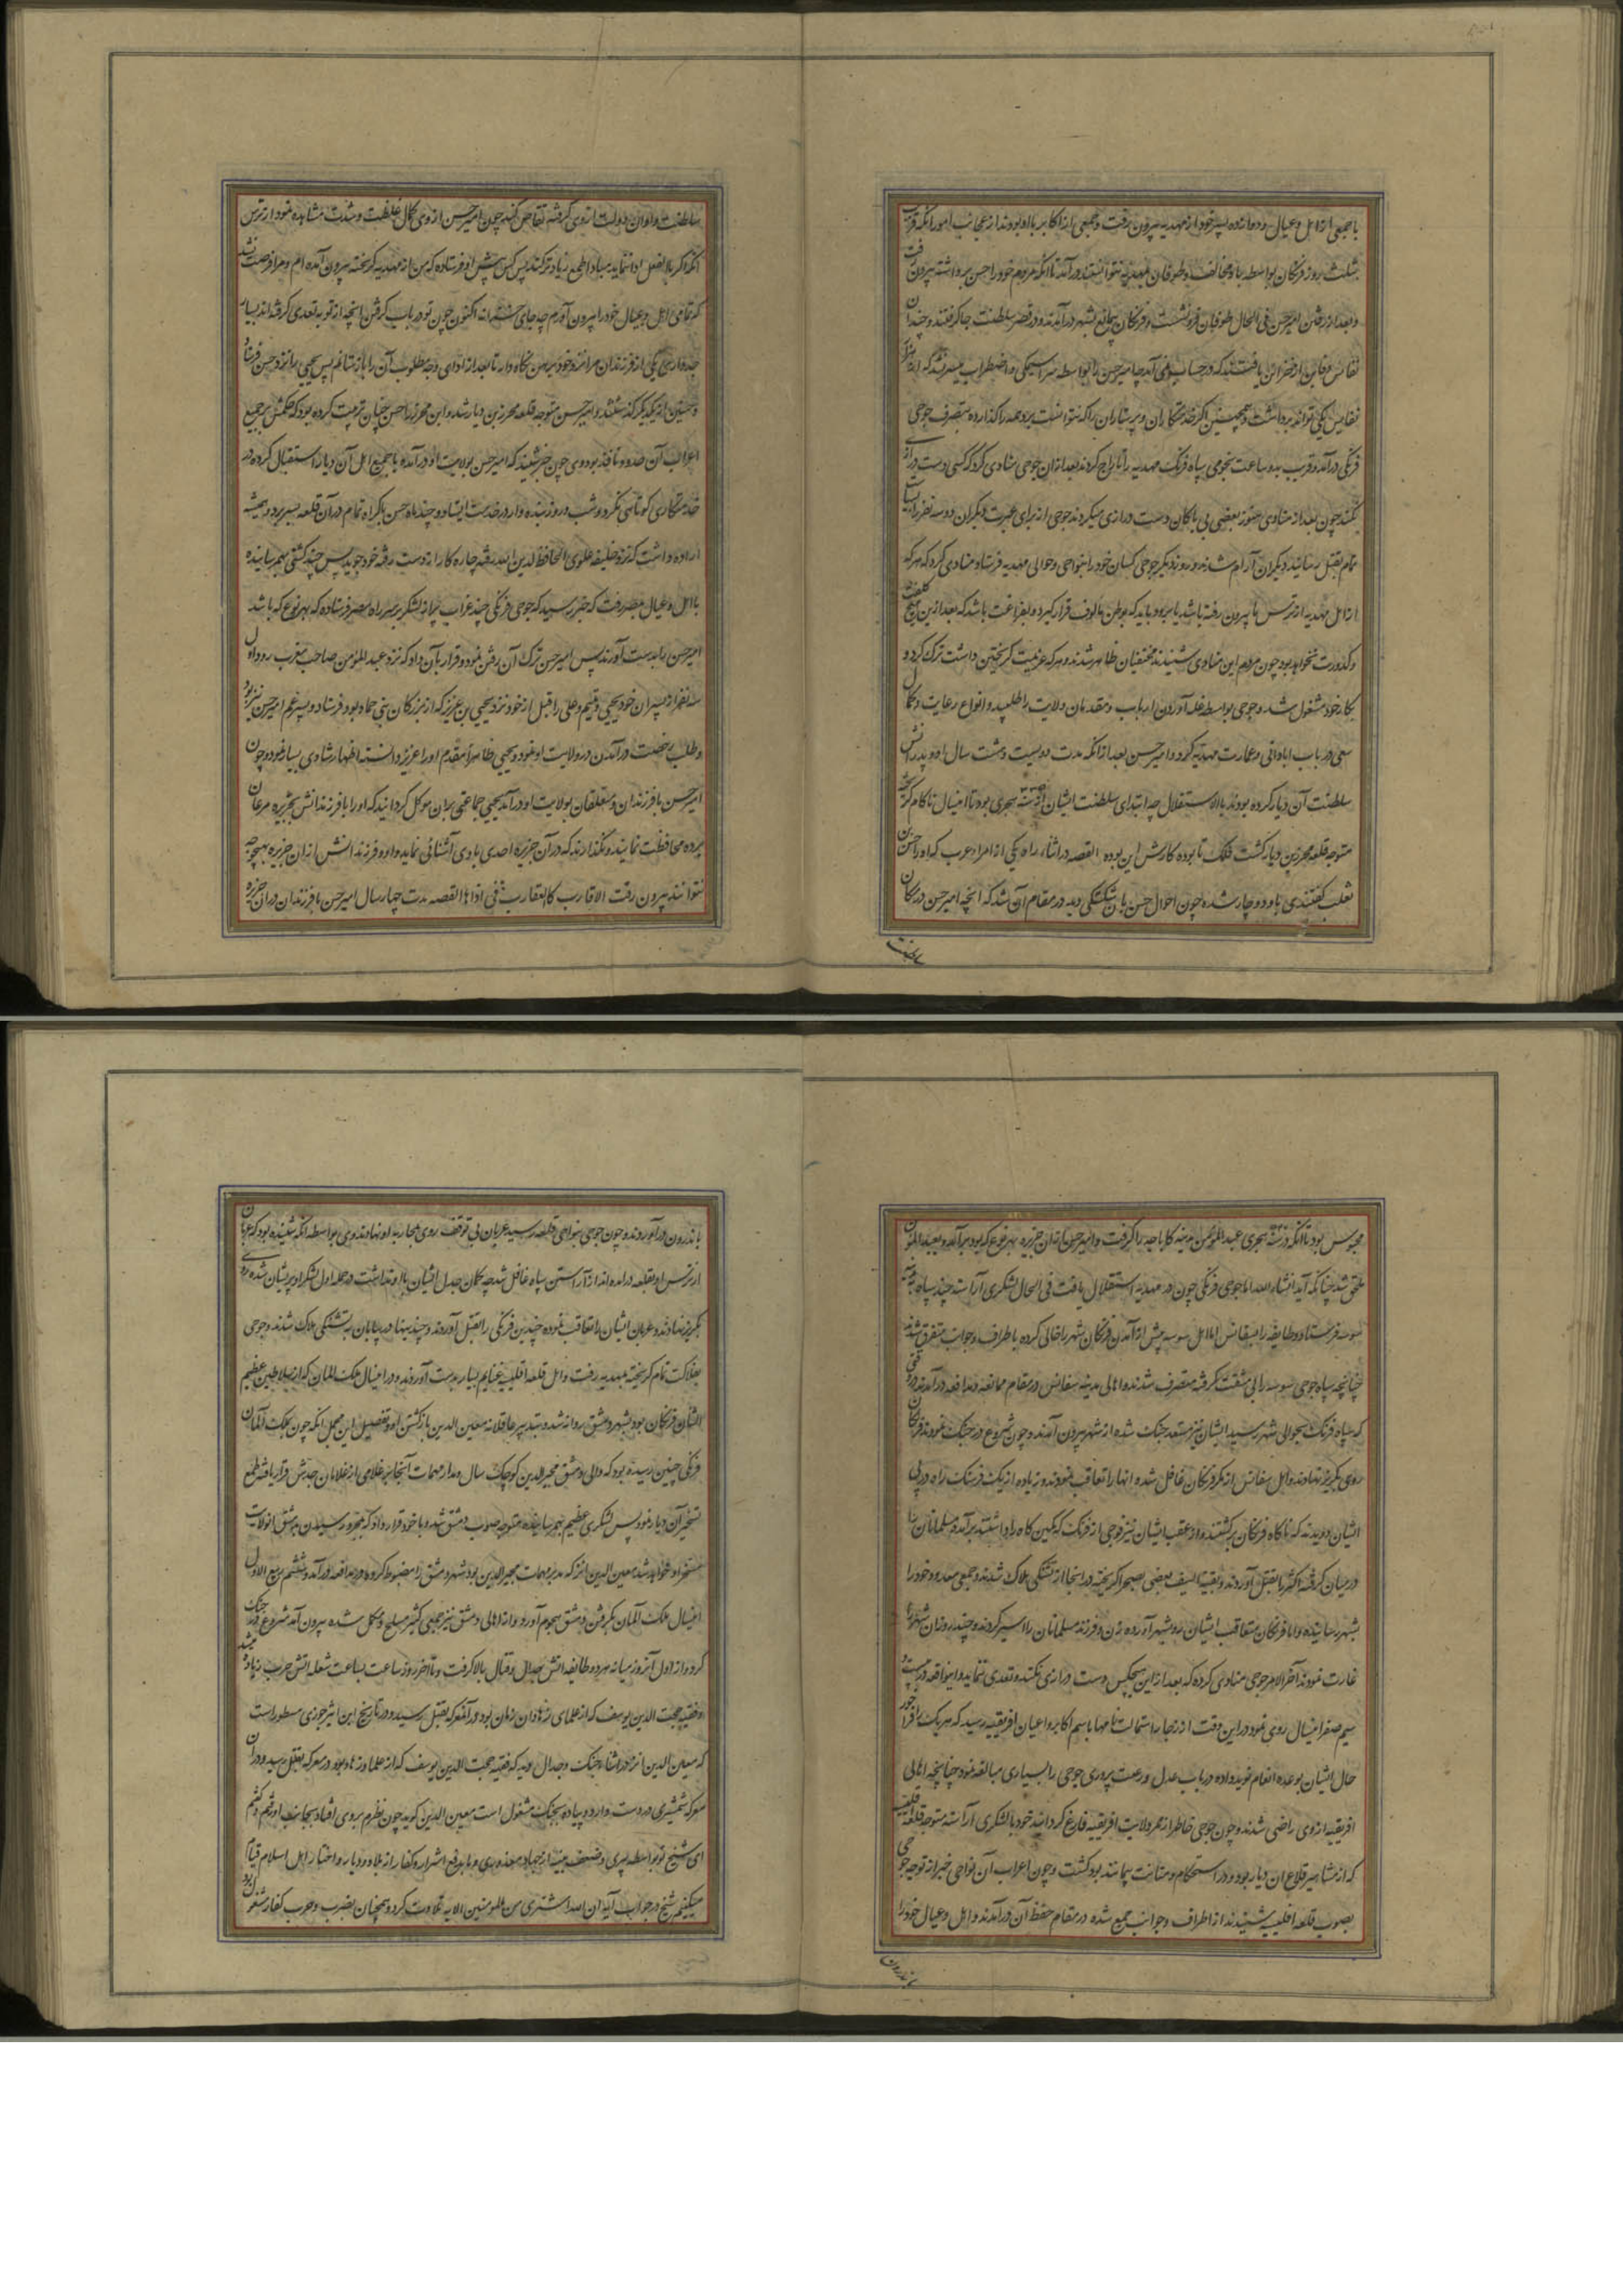 با جمعی از اهل و عیال و دوازده پسر خود از مهدیه بیرون رفت و جمعی از اکابر با او بودند از عجائب امور آنکه قریب
بثلث روز فرنگان بواسطه باد مخالف و طوفان بمهدیه نتوانستند درآمد تا آنکه مردم خود را حسن برداشته بیرون رفت
و بعد از رفتن امیر حسن فی الحال طوفان فرو نشست و فرنگان بی مانع بشهر درآمدند و در قصر سلطنت جا گرفتند و چندان
نفائس و خزائن یافتند که در حساب نمی آمد چه امیر حسن را بواسطه سراسیمگی و اضطراب میسر نشد که از هزار
نفایس یکی تواند برداشت و همچنین اکثر خدمتکاران و پرستاران را که نتوانست برد همه را گذارده بتصرف جوجی
فرنگی درآمد و قریب بدو ساعت نجومی سپاه فرنگ مهدیه را تاراج کردند بعد از آن جوجی منادی کرد که کسی دست درازی
نکند چون بعد از منادی هنوز بعضی بی باکان دست درازی میکردند جوجی از برای عبرت دیگران دو سه نفر را بسیاست
تمام بقتل رسانید دیگران آرام شدند و روز دیگر جوجی کسان خود را بنواحی و حوالی مهدیه فرستاد و منادی کرد که هر که
از اهل مهدیه از ترس ما بیرون رفته باشد باید که بوطن مألوف قرار گیرد و بفراغت باشد که بعد ازین هیچ کلفت
و کدورت نخواهد بود چون مردم این منادی شنیدند مختفیان ظاهر شدند و هر که عزیمت گریختن داشت ترک کرد و
بکار خود مشغول شد و جوجی بواسطه غله آوردن ارباب و مقدمان ولایت را طلبید و انواع رعایت و کمال
سعی در باب آبادانی و عمارت مهدیه کرد و امیر حسن بعد از آنکه مدت دویست و هشت سال او و پدرانش
سلطنت آن دیار کرده بودند بالاستقلال چه ابتدای سلطنت ایشان از سنه ۳۳۵ هجری بود تا امسال ناکام گریخته
متوجه قلعه محرزبن دیار گشت فلک تا بوده کارش این بوده القصه در اثناء راه یکی از امراء عرب که او را حسن بن
ثعلب گفتندی باو دوچار شده چون احوال حسن بآن شکستگی دید در مقام آن شد که آنچه امیر حسن در زمان
سلطنت
سلطنت و اوان دولت از وی گرفته تقاص کند چون امیر حسن از وی کمال غلظت و شدت مشاهده نمود از ترس
آنکه اگر بالفعل ادا ننماید مبادا طمع زیاد ترکند پس کس پیش او فرستاده که من از مهدیه گریخته بیرون آمده ام و مرا فرصت نشد
که تمامی اهل و عیال خود را بیرون آورم چه جای خزانه اکنون چون تو در باب گرفتن آنچه از تو بتعدی گرفته اند بسیار
جد داری یکی از فرزندان مرا نزد خود برهن نگاه دار تا بعد از ادای وجه مطلوب آن را باز ستانم پس یحیی را نزد حسن فرستاد
و حسن از یکدیگر گذشتند و امیر حسن متوجه قلعه محرزبن دیار شد و ابن محرز را حسن چنان تربیت کرده بود که حکمش بر جمیع
اعراب آن حدود نافذ بود وی چون خبر شنید که امیر حسن بولایت او درآمده با جمیع اهل آن دیار استقبال کرده در
خدمتکاری کوتاهی نکرد و شب و روز بنده وار در خدمت ایستاد و چند ماه حسن باکراه تمام در آن قلعه بسر برد و همیشه
اراده داشت که نزد خلیفه علوی الحافظ لدین الله رفته چاره کار از دست رفته خود جوید پس چند کشتی بهم رسانیده
با اهل و عیال بمصر رفت که خبر رسید که جوجی فرنگی چند غراب پر از لشکر بر سر راه مصر فرستاده که بهر نوع که باشد
امیر حسن را بدست آورند پس امیر حسن ترک آن رفتن نموده و قرار بآن داد که نزد عبد المؤمن صاحب مغرب رود اول
سه نفر از پسران خود یحیی و تمیم و علی را قبل از خود نزد یحیی بن عزیز که از بزرگان بنی حماد بود فرستاد و پسر عم امیر حسن نیز بود
و طلب رخصت درآمدن در ولایت او نمود و یحیی ظاهرا مقدم او را عزیز دانسته اظهار شادی بسیار نمود و چون
امیر حسن با فرزندان و متعلقان بولایت او درآمد یحیی جماعتی بر آن موکل گردانید که او را با فرزندانش بجزیره مرغان
برده محافظت نمایند و نگذارند که در آن جزیره احدی با وی آشنائی نماید و او و فرزندانش از آن جزیره بهیچ وجه
نتوانند بیرون رفت الاقارب کالعقارب فی اذاها القصه مدت چهار سال امیر حسن با فرزندان در آن جزیره
محبوس بود تا آنکه در سنه هجری عبد المؤمن مدینه کابجایه را گرفت و امیر حسن از آن جزیره بهر نوع که بود برآمد و بعبد المؤمن
ملحق شد چنانکه آید انشاء الله اما جوجی فرنگی چون در مهدیه استقلال یافت فی الحال لشکری آراسته چند سپاه بمدینه
سوسه فرستاد و طایفه را بسفاقس اما اهل سوسه پیش از آمدن فرنگان شهر را خالی کرده باطراف و جوانب متفرق شدند
چنانچه سپاه جوجی سوسه را بی مشقت گرفته متصرف شدند و اهالی مدینه سفاقس در مقام ممانعه و مدافعه درآمدند وقتی
که سپاه فرنگ بحوالی شهر رسید ایشان نیز مستعد جنگ شده از شهر بیرون آمدند و چون شروع در جنگ نمودند فرنگان
روی بگریز نهادند و اهل سفاقس از مکر فرنگان غافل شده آنها را تعاقب نمودند و زیاده از یک فرسنگ راه در پی
ایشان دویدند که ناگاه فرنگان برگشتند و از عقب ایشان نیز فوجی از فرنگ که کمین گاه را داشتند برآمده مسلمانان را
در میان گرفته اکثر را بقتل آوردند و بقیة السیف بعضی بصحرا گریخته در آنجا از تشنگی هلاک شدند و جمعی معدود خود را
بشهر رسانیده و اما فرنگان متعاقب ایشان رو بشهر آورده زن و فرزند مسلمانان را اسیر کردند و چند روز آن شهر را
غارت نمودند آخر الامر جوجی منادی کرده که بعد از این هیچکس دست درازی نکند و تعدی ننماید و این واقعه در بیست و
سیم صفر امسال روی نمود در این وقت از زنجار استمالت نامها باسم اکابر و اعیان افریقیه رسید که هر یک را فراخور
حال ایشان بوعده انعام نوید داده در باب عدل و رعیت پروری جوجی را بسیاری مبالغه نمود چنانچه اهالی
افریقیه از وی راضی شدند و چون جوجی خاطر از مهر ولایت افریقیه فارغ گردانید خود با لشکری آراسته متوجه قلعه اقلیبیه
که از مشاهیر قلاع آن دیار بود و در استحکام و متانت بیمانند بود گشت و چون اعراب آن نواحی خبر از توجه جوجی
بصوب قلعه اقلیبیه شنیدند از اطراف و جوانب جمع شده در مقام حفظ آن درآمدند و اهل و عیال خود را
باندرون
باندرون درآوردند و چون جوجی بنواحی قلعه رسید عربان بی توقف روی بمحاربه او نهادند وی بواسطه آنکه شنیده بود که عربان
از ترس او بقلعه درآمده اند از آراستن سپاه غافل شد چه گمان جدل ایشان با او نداشت در حمله اول لشکر او پریشان شده روی
بگریز نهادند و عربان ایشان را تعاقب نموده چندین فرنگی را بقتل آوردند و چندینها در بیابان به تشنگی هلاک شدند و جوجی
بفلاکت تمام گریخته بمهدیه رفت و اهل قلعه اقلیبیه غنایم بسیار بدست آوردند و در امسال ملک المان که از سلاطین عظیم
الشان فرنگان بود بشهر دمشق روانه شد و بتدبیر عاقلانه معین الدین بازگشتن او و تفصیل این مجمل آنکه چون بملک المان
فرنگی چنین رسیده بود که والی دمشق مجیر الدین کوچک سال و مدار مهمات آنجا بر غلامی از غلامان جدش قرار یافته طمع
تسخیر آن دیار نمود پس لشکری عظیم بهم رسانیده متوجه صوب دمشق شد و با خود قرار داد که بمجرد رسیدن بدمشق آنولایت
مسخر او خواهد شد معین الدین انز که مدبر مهمات مجیر الدین بود شهر دمشق را مضبوط کرده در مدافعه درآمد و ششم ربیع الاول
امسال ملک آلمان بگرفتن دمشق هجوم آورد و از اهالی دمشق نیز جمعی کثیر مسلح و مکمل شده بیرون آمده شروع در جنگ
کردند از اول آنروز میانه هر دو طایفه آتش جدال و قتال بالا گرفت و تا آخر روز ساعت بساعت شعله آتش حرب زیاده میشد
و فقیه حجت الدین یوسف که از علمای زهاد آن زمان بود در آنمعرکه بقتل رسید و در تاریخ ابن اثیر جزری مسطور است
که معین الدین انز در اثناء جنگ و جدال دید که فقیه حجت الدین یوسف که از علما و زهاد بود در معرکه بقتل رسید و در آن
معرکه شمشیری در دست دارد و پیاده بجنگ مشغول است معین الدین گوید چون نظرم بروی افتاد بجانب او رفتم و گفتم
ای شیخ تو بواسطه پیری و ضعف بنیه از جهاد معذوری و ما بدفع اشرار و کفار از بلاد و دیار و اختیار اهل اسلام قیام
میکنیم شیخ در جواب آیه ان الله اشتری من المؤمنین الآیه تلاوت کرد و همچنان بضرب و حرب کفار مشغول بود